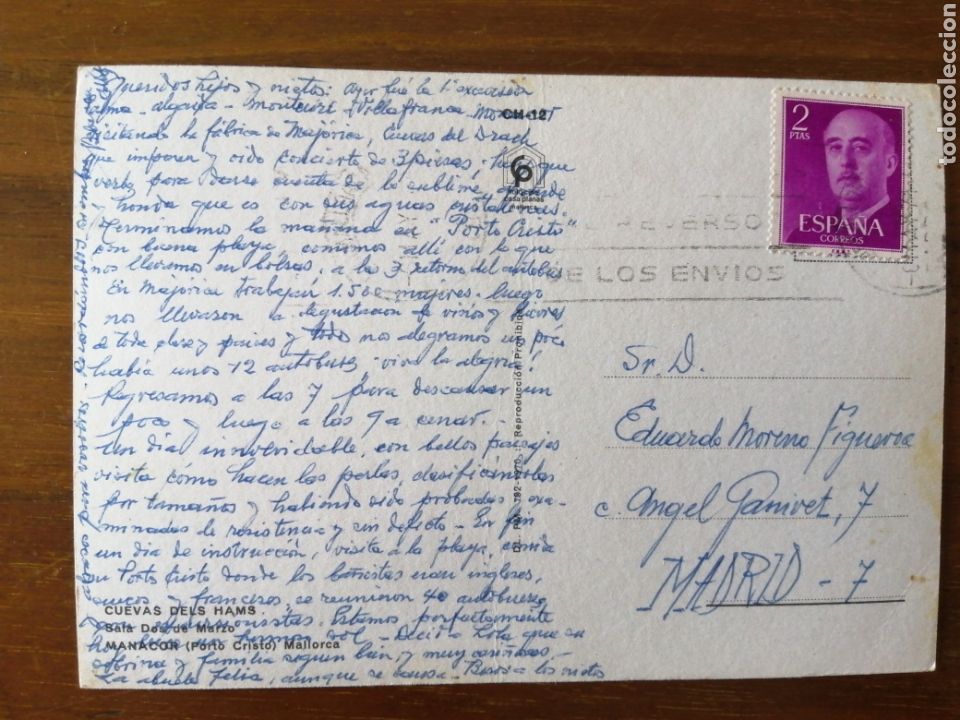 Queridos hijos y nietos: ayer fué la 1ª excursión
Palma - Algaida - Montuiri - Villafranca - Manacor
visitando la fábrica de Majórica, Cuevas del Drach
que imponen y oido concierto de 3 piezas. hay que
verlo para darse cuenta de lo sublime, grande
y honda que es con sus aguas cristalinas.
Terminamos la mañana en "Porto Cristo"
con buena playa, comimos allí con lo que
nos llevamos en bolsas, a las 3 retorno del autobus
En Majorica trabajan 1.500 mujeres. luego
nos llevaron a degustacion de vinos y licores
de toda clase y paises y todos nos alegramos un poco
había unos 12 autobuses ¡viva la alegria!
Regresamos a las 7 para descansar un
poco y luego a las 9 a cenar.
Un dia inolvidable, con bellos paisajes
visita cómo hacen las perlas, clasificándolas
por tamaños y habiendo sido probadas, exa-
minadas de resistencia y sin defecto - En fin
un dia de instrucción, visita a la playa, comida
en Porto Cristo donde los bañistas eran ingleses,
suecos y franceses se reunieron 40 autobuses
con excursionistas. Estamos perfectamente
hermoso sol - Decid a Lola que su
sobrina y familia siguen bien y muy cariñosas -
La abuela Felia, aunque se cansa. Besos a los nietos
algo escaso para vosotros.
CUEVAS DELS HAMS
Sala Dos de Marzo
MANACOR (Porto Cristo) Mallorca
CH-12
casa planas
Reproducción Prohibida
2
PTAS
ESPAÑA
CORREOS
REVERSO
DE LOS ENVIOS
Sr. D.
Eduardo Moreno Figueroa
c. Angel Ganivet, 7
MADRID - 7
todocoleccion